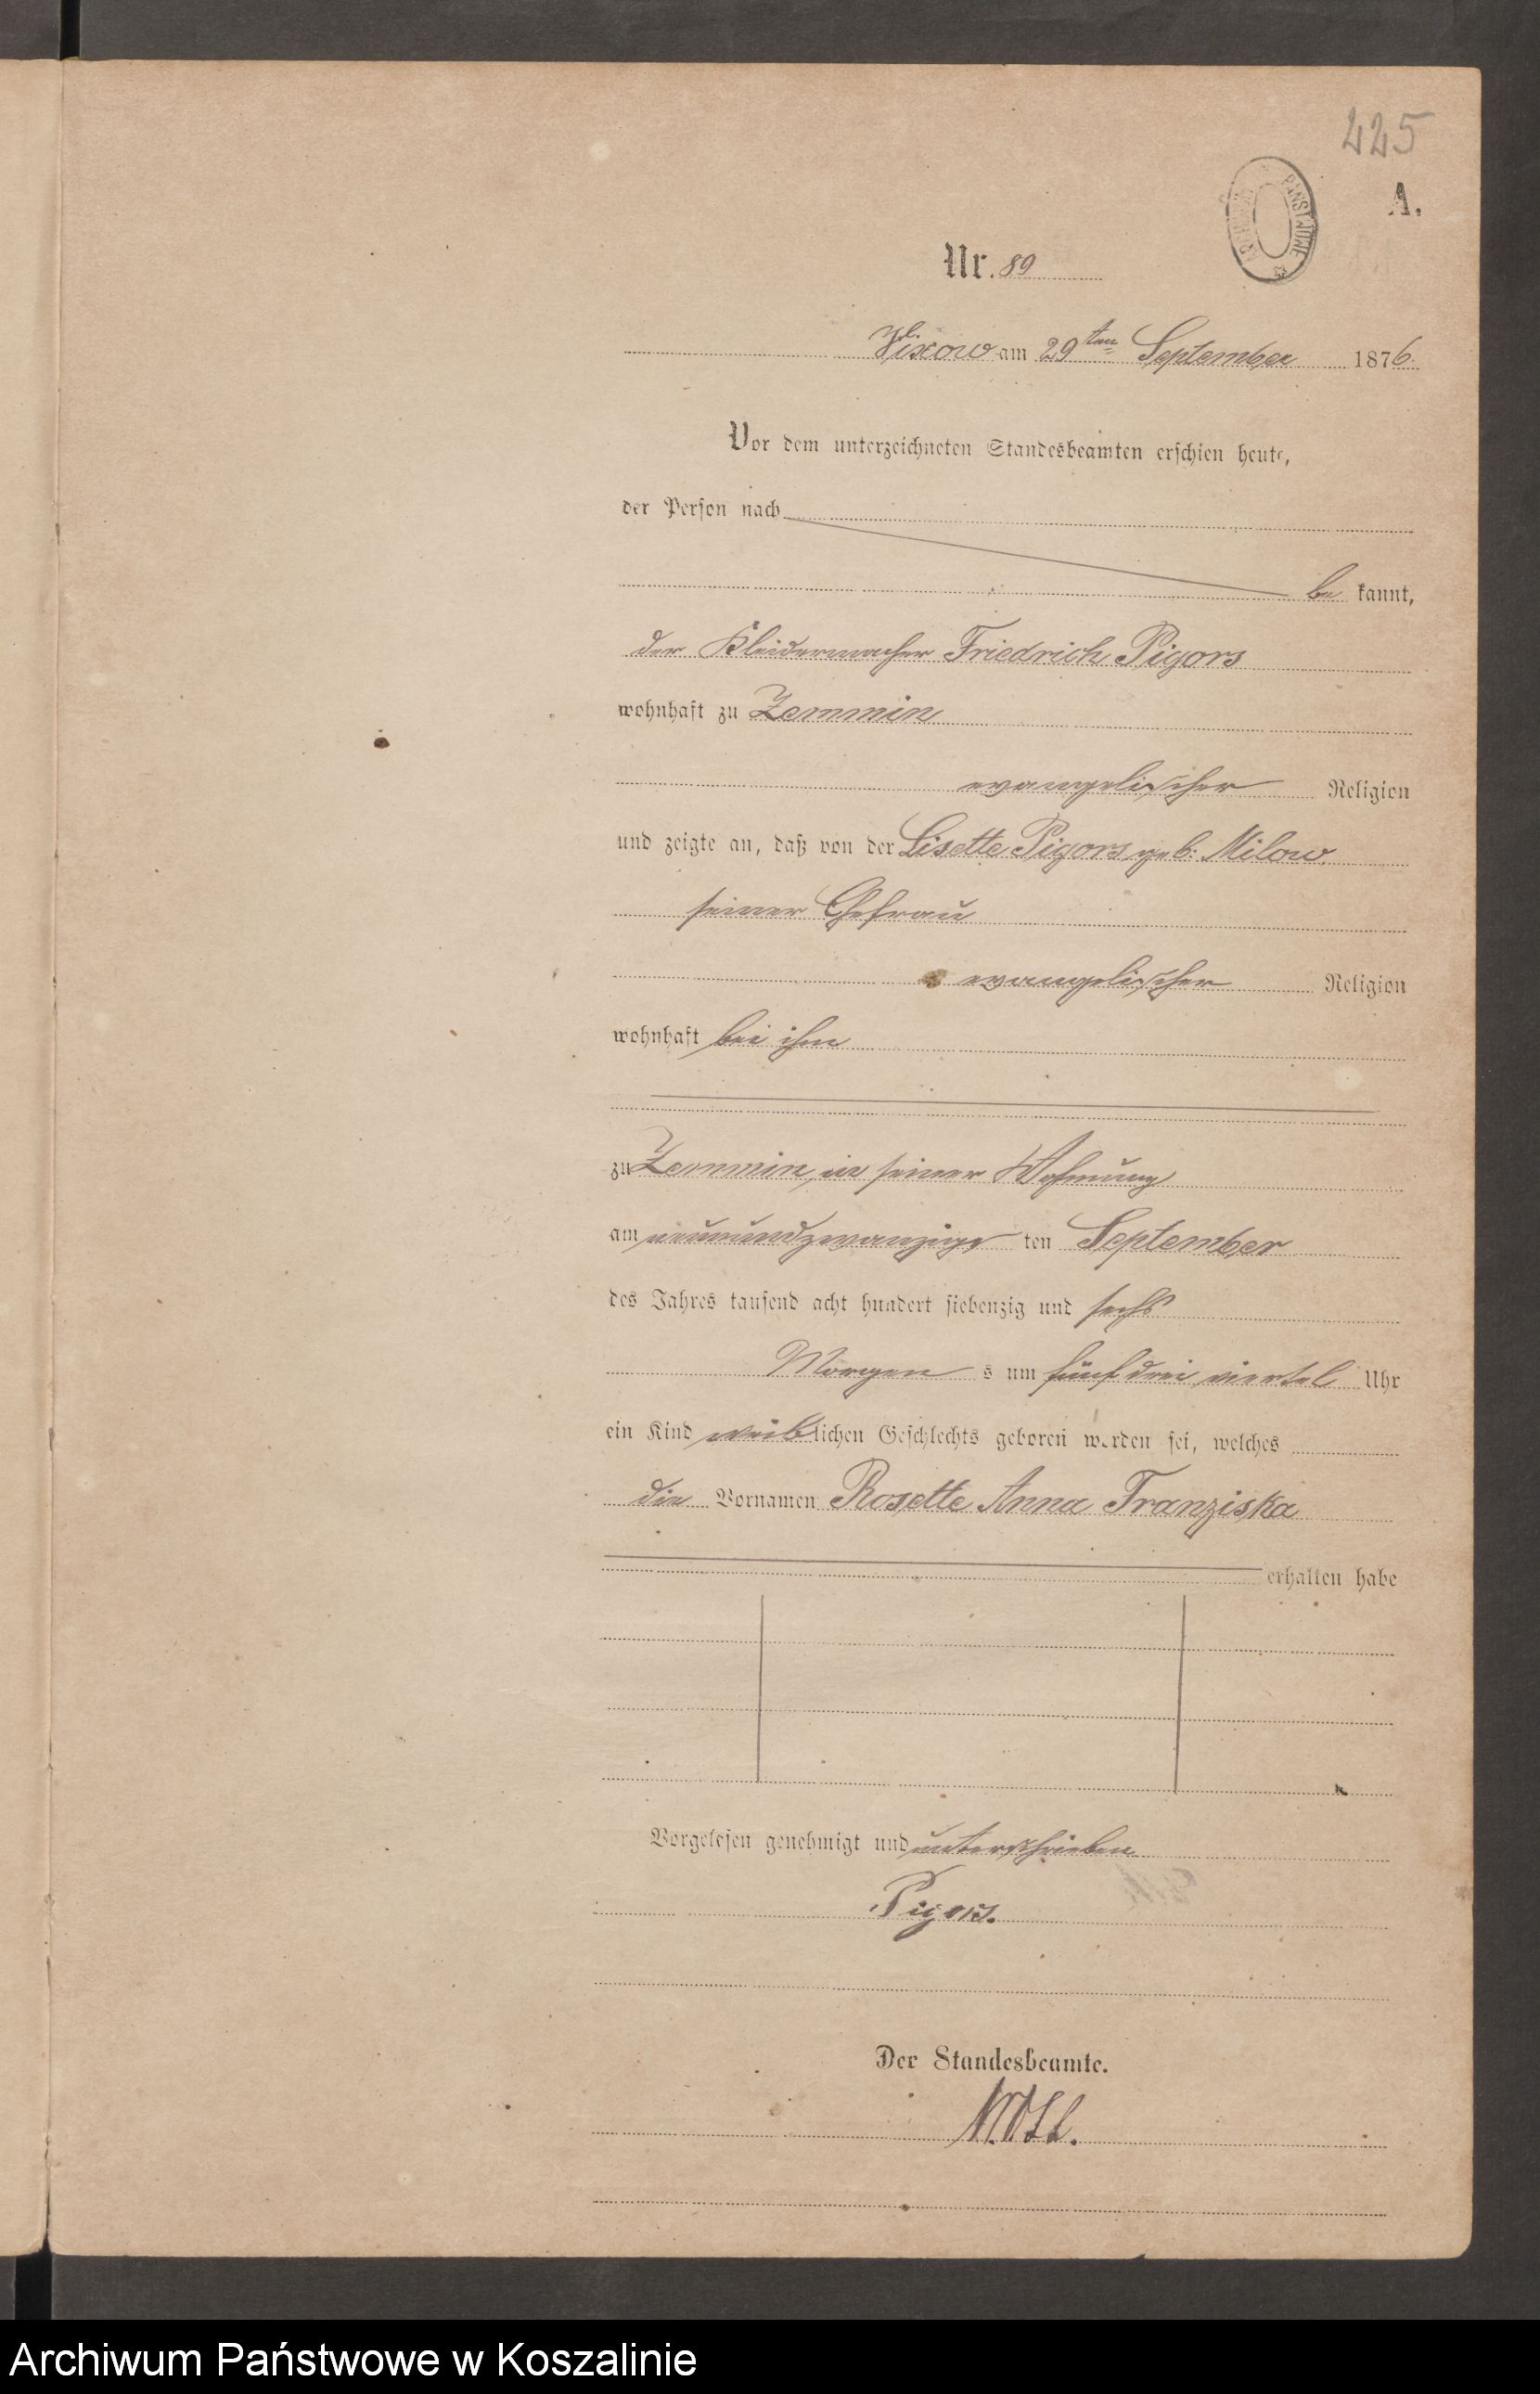 225
A.
ARCHIWUM PAŃSTWOWE
Nr. 89
am 29ten September 1876.
Vor dem unterzeichneten Standesbeamten erschien heute,
der Person nach
be kannt,
der Kleidermacher Friedrich Pigors
wohnhaft zu Zemmin
evangelischer Religion
und zeigte an, daß von der Lisette Pigors geb: Milow,
seiner Ehefrau
evangelischer Religion
wohnhaft bei ihm
zu Zemmin, in seiner Wohnung
am neunundzwanzigs ten September
des Jahres tausend acht hundert siebenzig und sechs
Morgen s um fünf drei viertel Uhr
ein Kind weiblichen Geschlechts geboren worden sei, welches
die Vornamen Rosette Anna Franziska
erhalten habe
Vorgelesen genehmigt und unterschrieben
Pigors.
Der Standesbeamte.
Archiwum Państwowe w Koszalinie